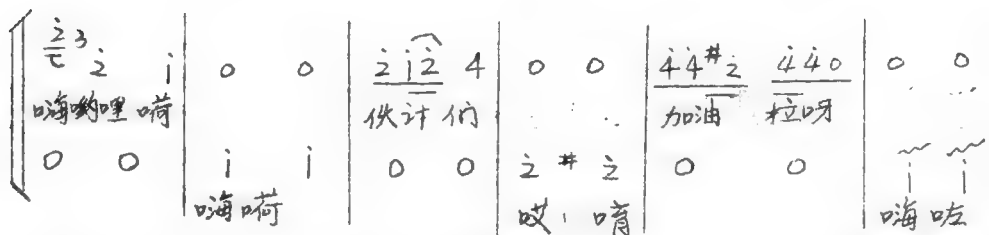 2 3 2 i | 0 0 | 2 i 2 4 | 0 0 | 4 4 #2 4 4 0 | 0 0
嗨哟嘿嗬 伙计们 加油 拉呀
0 0 | i i | 0 0 | 2 # 2 | 0 0 | i i
嗨嗬 哎,唷 嗨咗